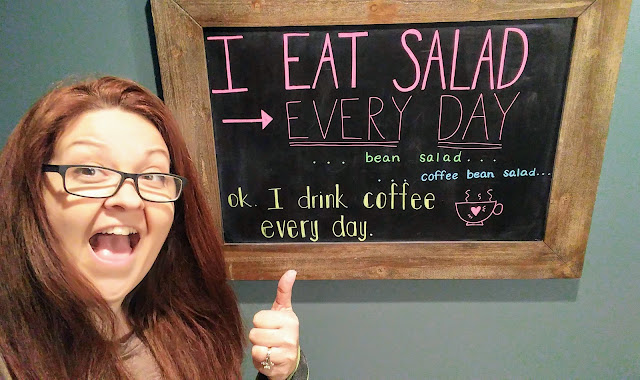 I EAT SALAD
→ EVERY DAY
... bean salad...
... coffee bean salad...
ok. I drink coffee
every day.